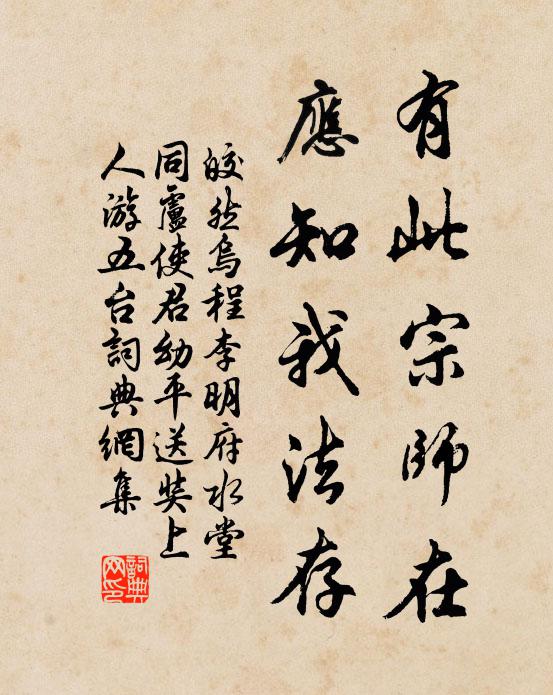 有此宗師在
應知我法存
皎然烏程李明府水堂
同盧使君幼平送奘上
人游五台詞典網集
詞典网印